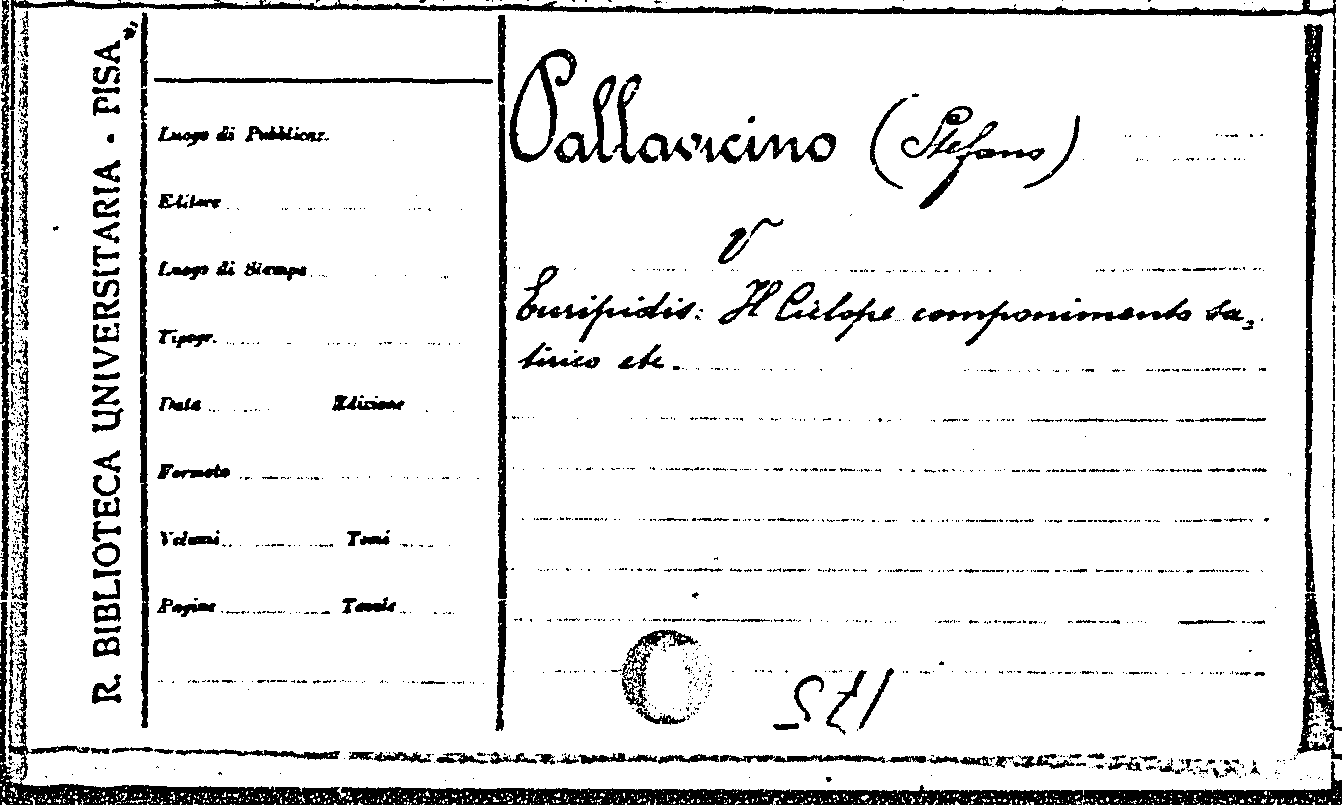 R. BIBLIOTECA UNIVERSITARIA - PISA
Luogo di Pubblicaz.
Editore
Luogo di Stampa
Tipogr.
Data Edizione
Formato
Volumi Tomi
Pagine Tavole
Pallavicino (Stefano)
V
Euripidis: Il Ciclope componimento sa,
tirico etc.
175